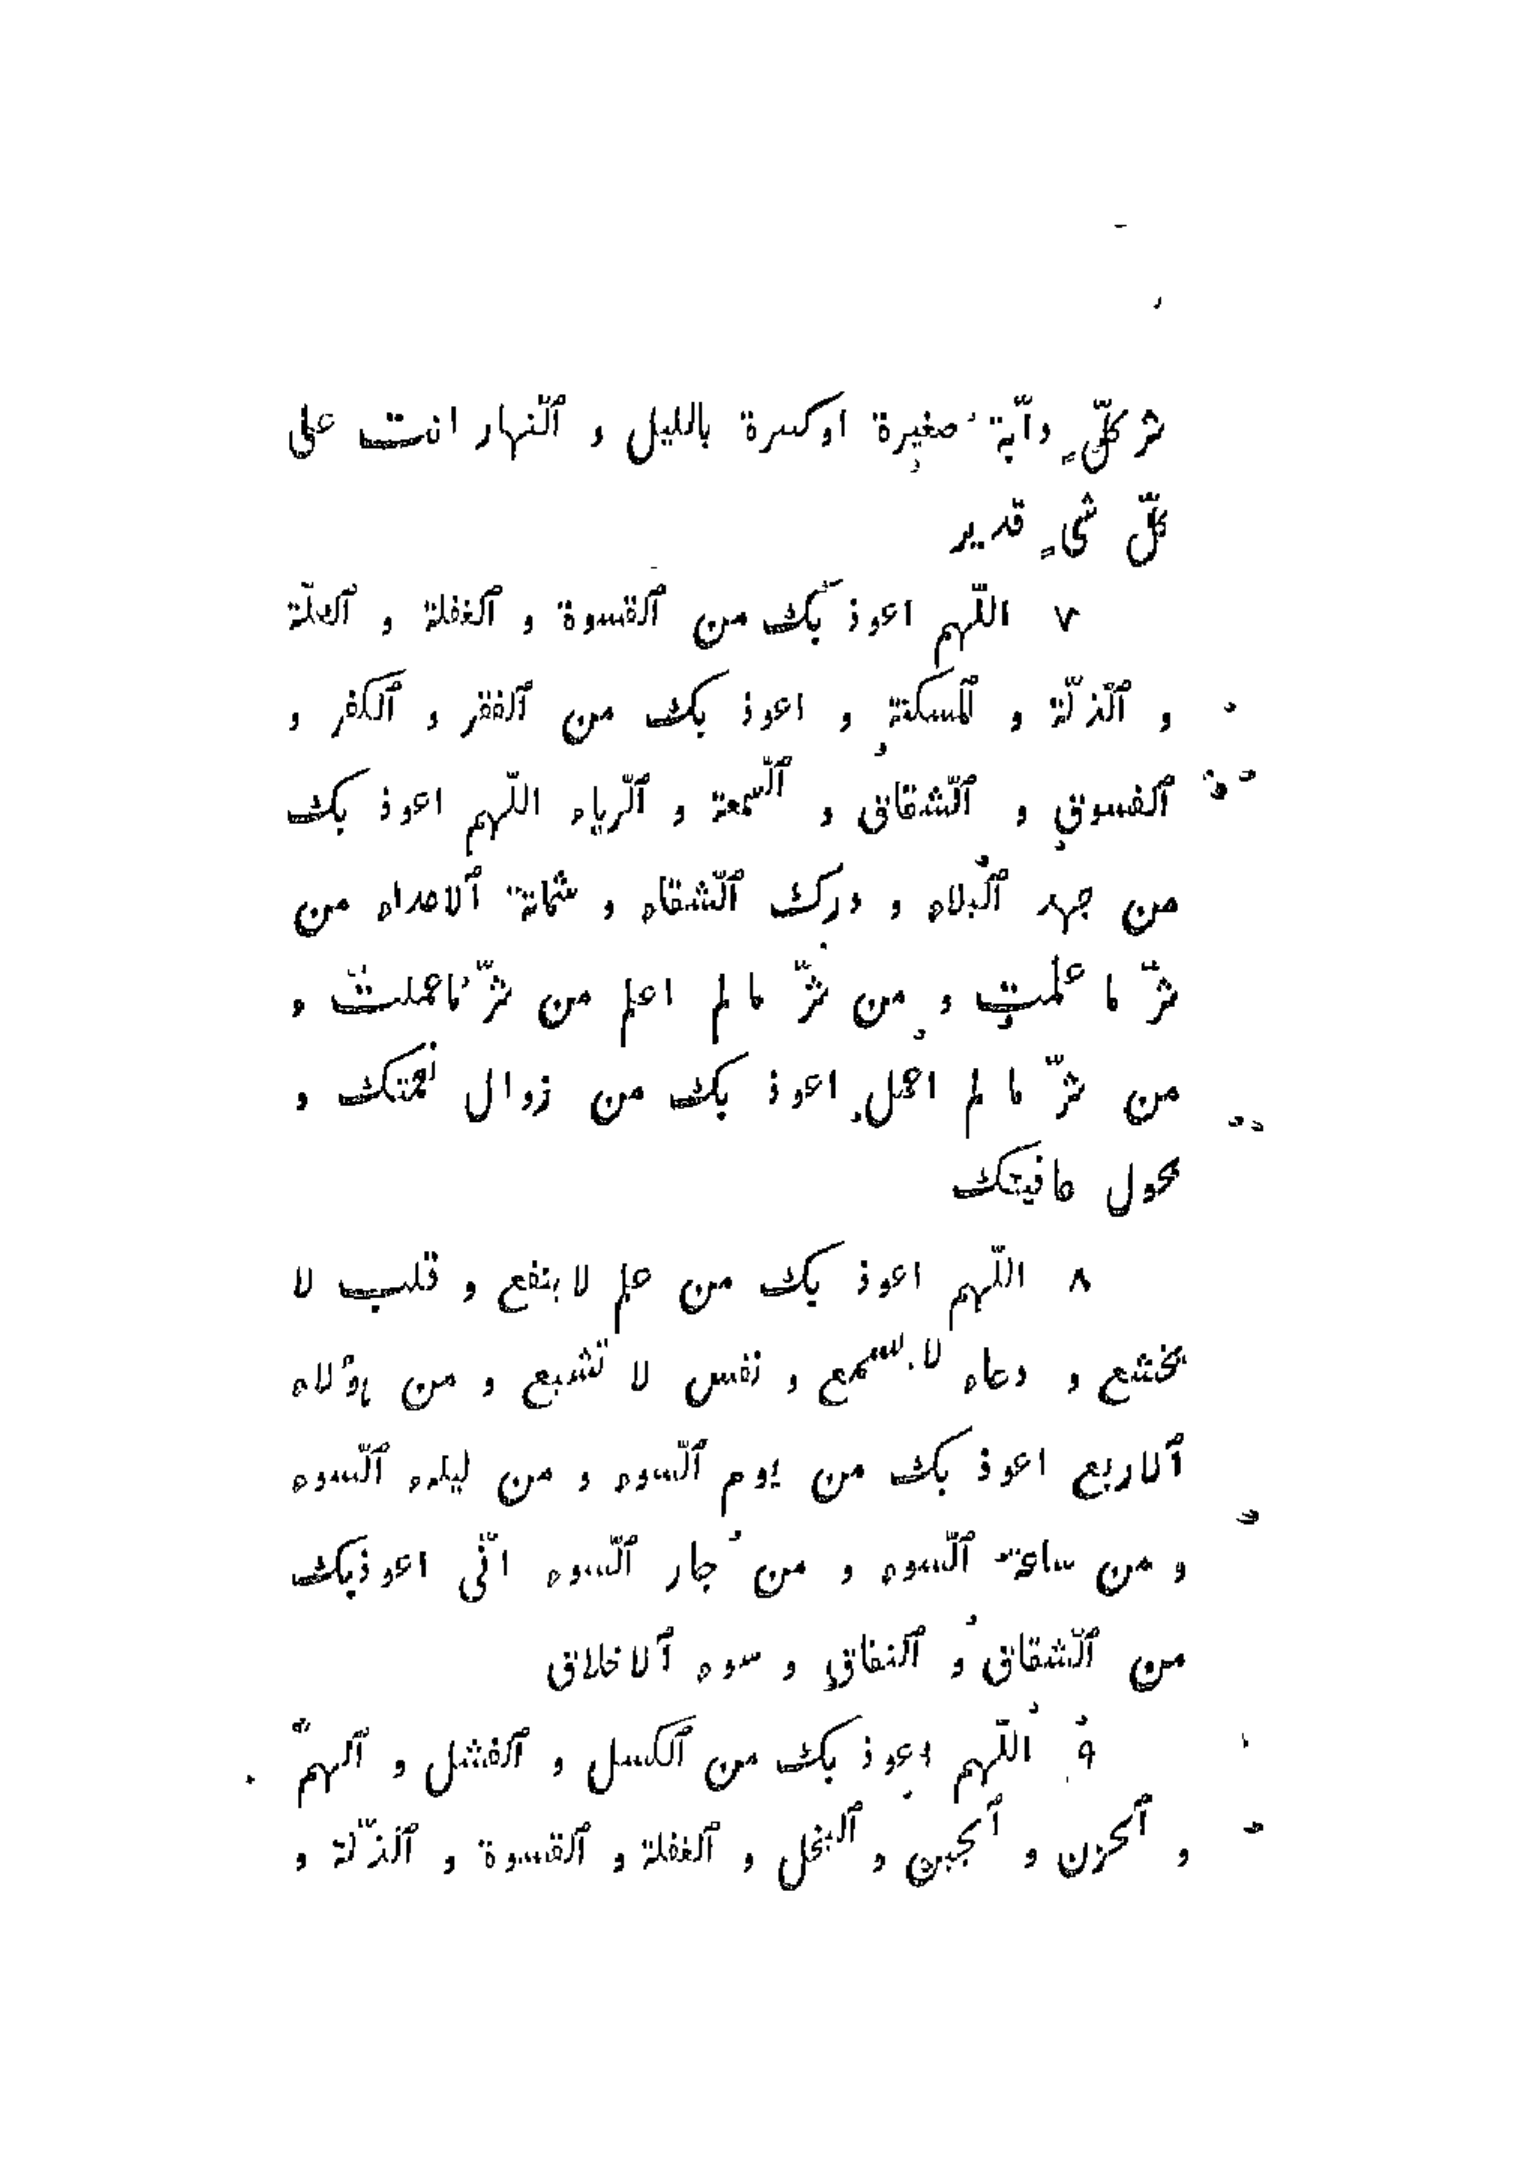 شر كلّ دآبّة صغيرة او كبيرة بالليل و ٱلنّهار انت على
كلّ شىءٍ قدير
٧ اللّهم اعوذ بك من ٱلقسوة و ٱلغفلة و ٱلعلّة
و ٱلذّلّة و ٱلمسكنة و اعوذ بك من ٱلفقر و ٱلكفر و
ٱلفسوق و ٱلشّقاق و ٱلسّمعة و ٱلرّياء اللّهم اعوذ بك
من جهد ٱلبلاء و درك ٱلشّقاء و شماتة ٱلاعداء من
شرّ ما علمت و من شرّ ما لم اعلم من شرّ ما عملت و
من شرّ ما لم اعمل اعوذ بك من زوال نعمتك و
تحول عافيتك
٨ اللّهم اعوذ بك من علم لا ينفع و قلب لا
يخشع و دعاء لا يسمع و نفس لا تشبع و من هؤلاء
ٱلاربع اعوذ بك من يوم ٱلسّوء و من ليلة ٱلسّوء
و من ساعة ٱلسّوء و من جار ٱلسّوء انّى اعوذ بك
من ٱلشّقاق و ٱلنفاق و سوء ٱلاخلاق
٩ اللّهم اعوذ بك من ٱلكسل و ٱلفشل و ٱلهمّ
و ٱلحزن و ٱلجبن و ٱلبخل و ٱلغفلة و ٱلقسوة و ٱلذّلة و